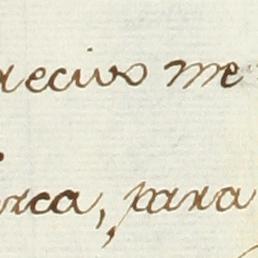 recivo me
rca, para